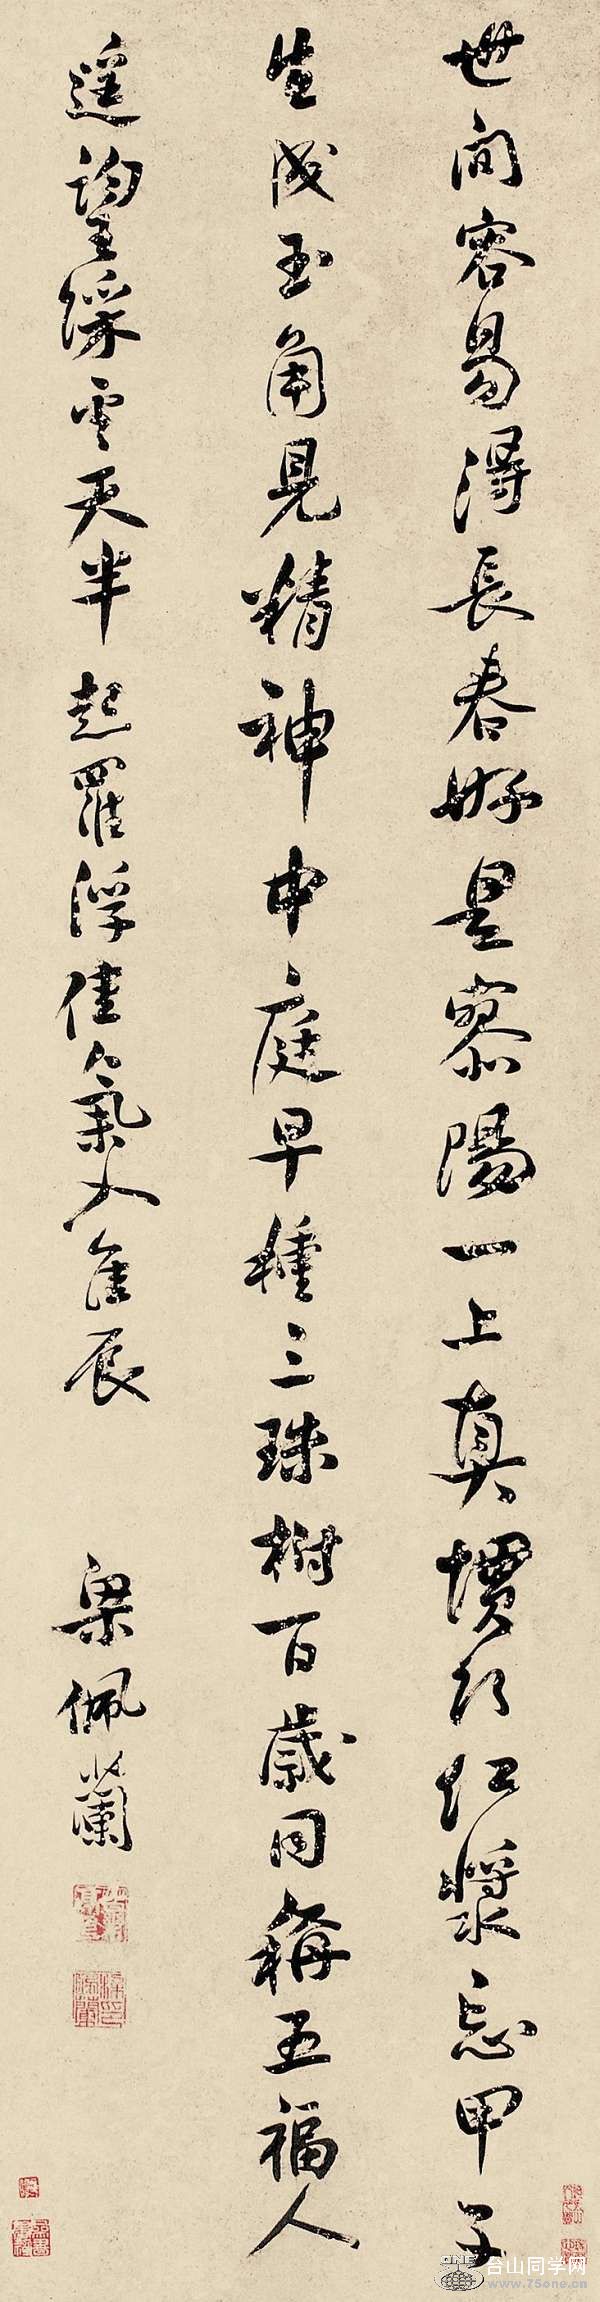 世間容易得長春好是寥陽一上真慣行紅漿忘甲子
生成玉角見精神中庭早種三珠樹百歲同稱五福人
遥望綵雲天半起羅浮佳氣入隹辰
梁佩蘭
ONE
台山同学网
www.75one.cn